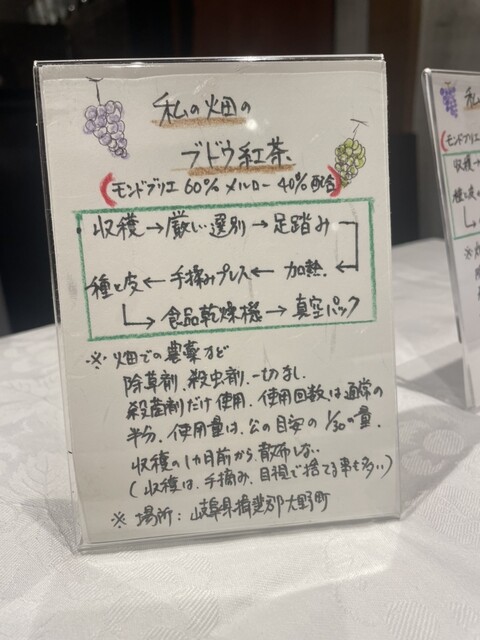 私の畑の
ブドウ紅茶
(モンドブリエ60%メルロー40%配合)
収穫→厳しい選別→足踏み
種と皮←手摘みプレス←加熱
↳食品乾燥機→真空パック
※畑での農薬など
除草剤、殺虫剤、一切なし
殺菌剤だけ使用、使用回数は通常の
半分、使用量は、公の目安の1/30の量、
収穫の1ヵ月前から散布しない
(収穫は、手摘み、目視で捨てる率も多い)
※場所:岐阜県揖斐郡大野町
私
(モンド
収穫
種と